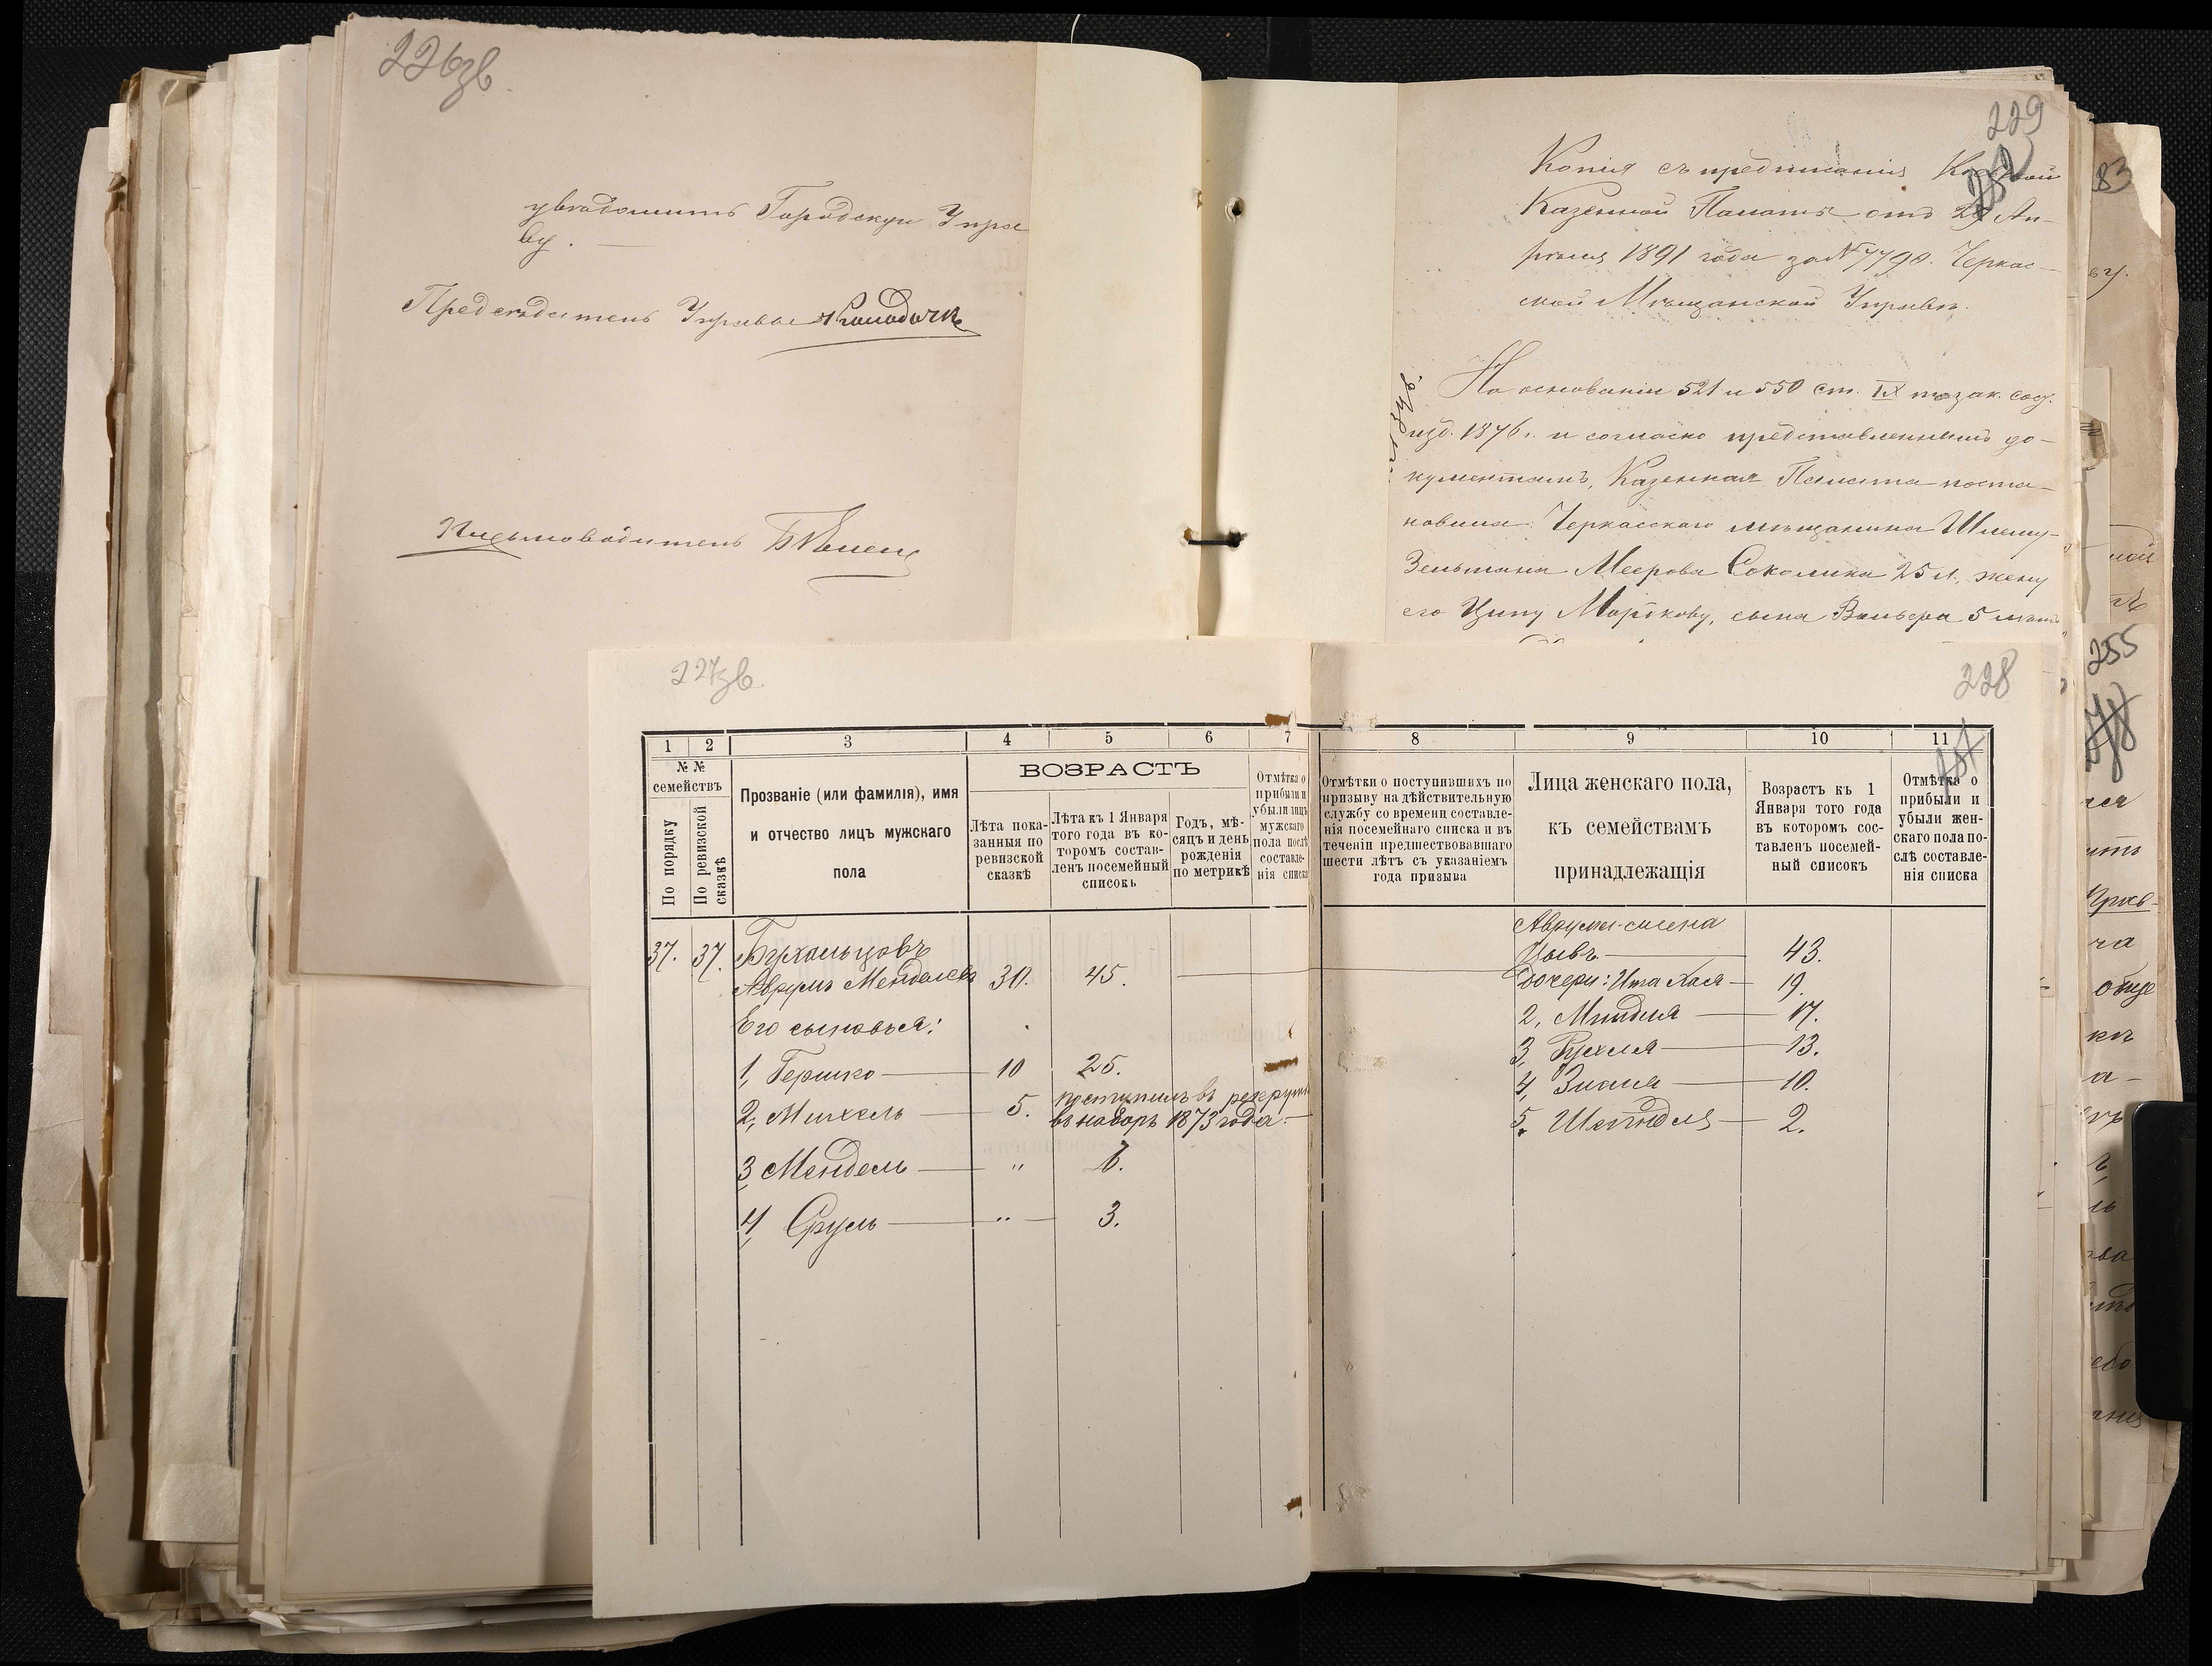 226зв.
увѣдомить Городскую Упра
ву. —
Предсѣдатель Управы
Письмоводитель
229
Копія съ предписанія
Казенной Палаты отъ 29 Ап-
рѣля 1891 года за № 7790. Черкас-
ской Мѣщанской Управѣ.
На основаніи 521 и 550 ст. IX т. зак. сос.
изд. 1876 г. и согласно представленнымъ до-
кументамъ, Казенная Палата поста-
новила: Черкасскаго мѣщанина Шлему-
Зельмана Меерова Соколика 25 л., жену
его Ципу Мордкову, сына Вольфа 5 лѣтъ
227зв.
228
1 2 3 4 5 6 7 8 9 10 11
№ №
семействъ
По порядку
По ревизской
сказкѣ
Прозваніе (или фамилія), имя
и отчество лицъ мужскаго
пола
ВОЗРАСТЪ
Лѣта пока-
занныя по
ревизской
сказкѣ
Лѣта къ 1 Января
того года въ ко-
торомъ состав-
ленъ посемейный
списокъ
Годъ, мѣ-
сяцъ и день
рожденія
по метрикѣ
Отмѣтка о
прибыли и
убыли лицъ
мужскаго
пола послѣ
составле-
нія списка
Отмѣтки о поступившихъ по
призыву на дѣйствительную
службу со времени составле-
нія посемейнаго списка и въ
теченіи предшествовавшаго
шести лѣтъ съ указаніемъ
года призыва
Лица женскаго пола,
къ семействамъ
принадлежащія
Возрастъ къ 1
Января того года
въ которомъ сос-
тавленъ посемей-
ный списокъ
Отмѣтка о
прибыли и
убыли жен-
скаго пола по-
слѣ составле-
нія списка
37. 37. Бухгольцовъ
Аврумъ Менделевъ 30. 45.
Его сыновья:
1, Гершко — 10 25.
2, Михель — 5. поступилъ въ рекруты
въ наборъ 1873 года. —
3, Мендель — " 7.
4, Сруль — " — 3.
Аврума жена
Цывья — 43.
Дочери: Ита Хася — 19.
2, Миндля — 17.
3, Рухля — 13.
4, Злата — 10.
5. Шейндля — 2.
83
255